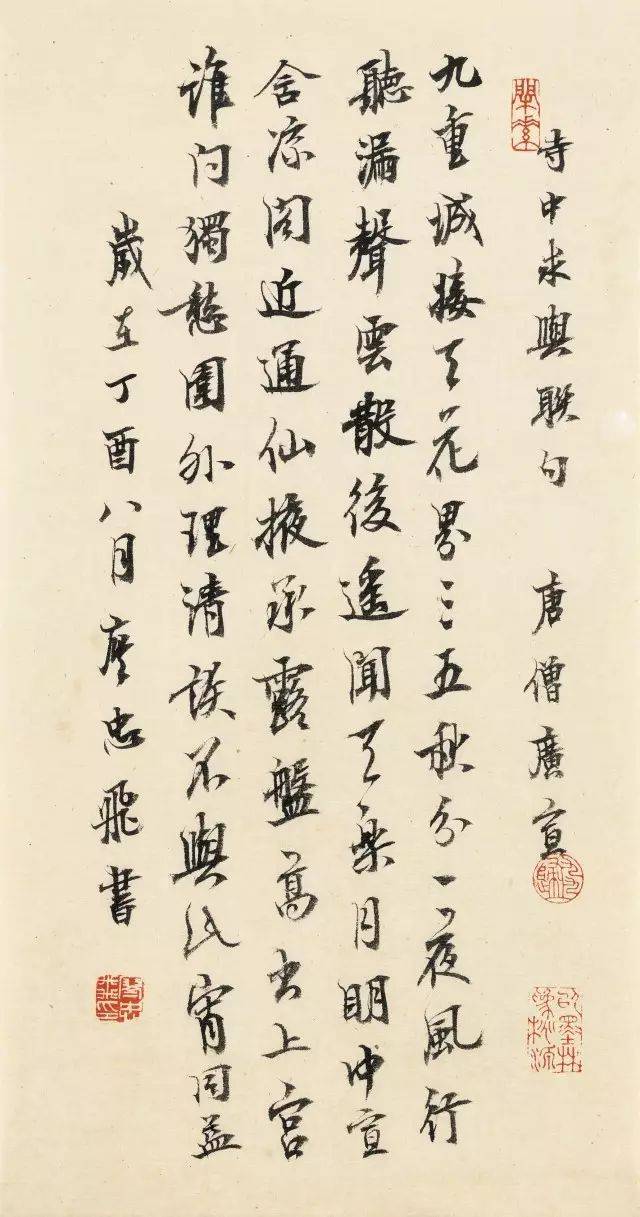 寺中求與聯句 唐僧廣宣
九重城接天花界三五秋分一夜風行
聽漏聲雲散後遙聞天樂月明中宣
含涼閣近通仙掖承露盤高出上宮
誰問獨愁園外理清談不與此宵同益
歲在丁酉八月忠飛書